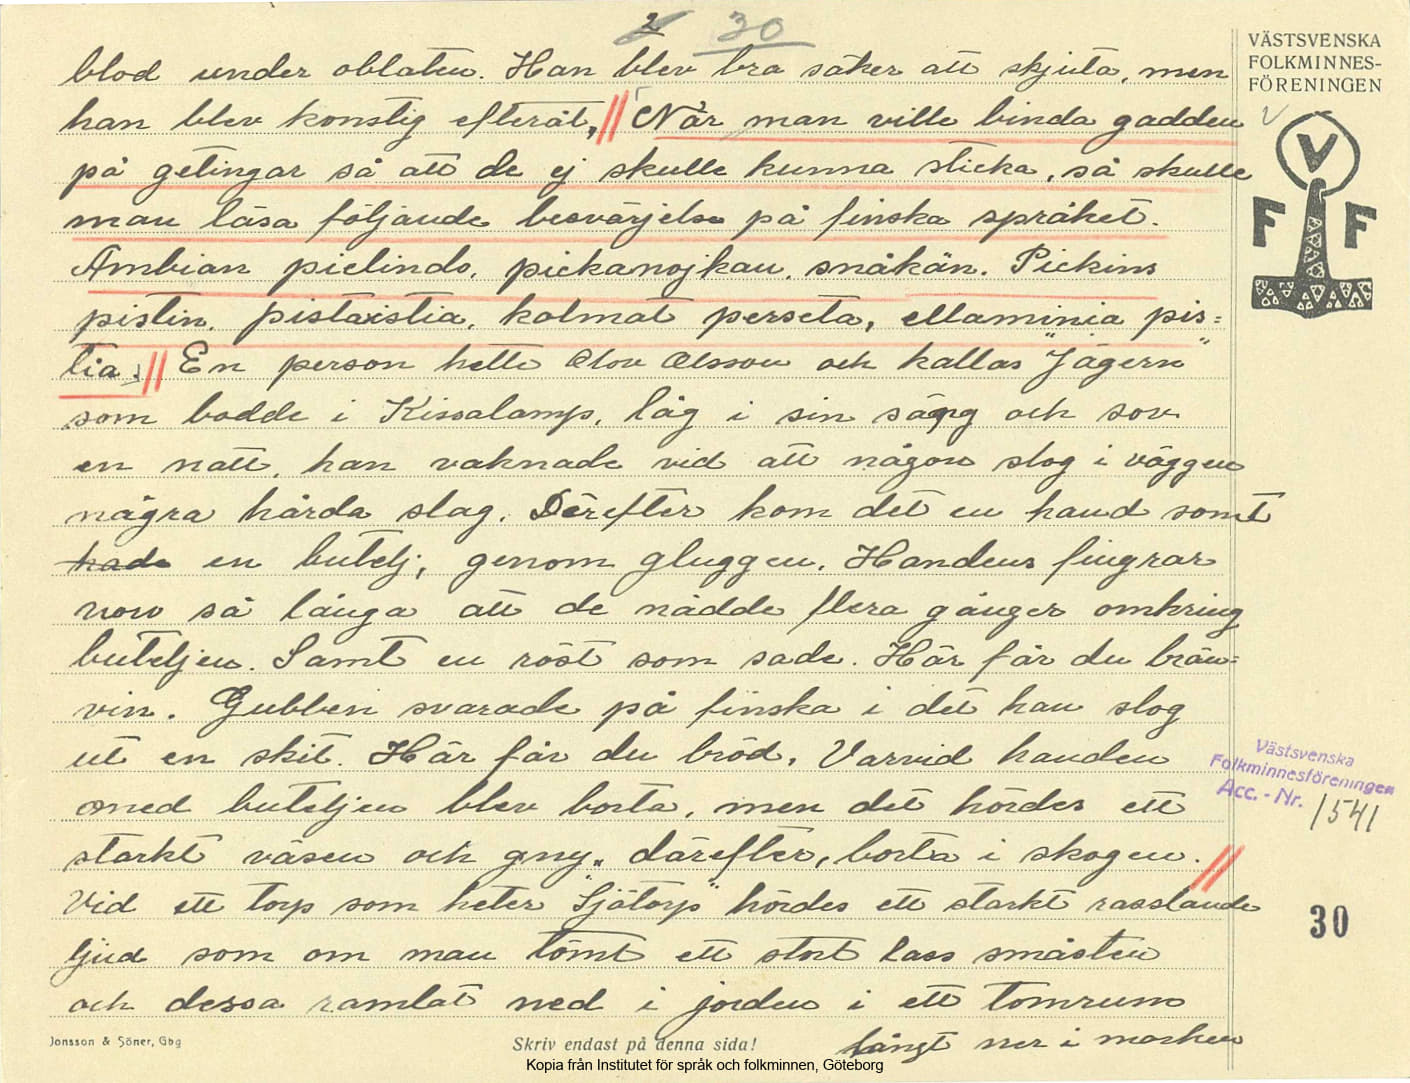 2 30
blod under oblaten. Han blev bra säker att skjuta, men
han blev konstig efteråt, När man ville binda gadden
på getingar så att de ej skulle kunna sticka, så skulle
man läsa följande besvärjelse på finska språket.
Ambian pielindo, pickanojkau. snåkän. Pickins
pistin. pistaistia, kolmat perseta, ellaminia pis=
tia. En person hette Olov Olsson och kallas "Jägern"
som bodde i Kissalamp, låg i sin säng och sov
en natt, han vaknade vid att någon slog i väggen
några hårda slag. Därefter kom det en hand somt
hade en butelj, genom gluggen. Handens fingrar
voro så långa att de nådde flera gånger omkring
buteljen. Samt en röst som sade. Här får du brän=
vin. Gubben svarade på finska i det han slog
ut en skit. Här får du bröd. Varvid handen
med buteljen blev borta, men det hördes ett
starkt väsen och gny, därefter, borta i skogen.
Vid ett torp som heter "Sjötorp" hördes ett starkt rasslande
ljud som om man tömt ett stort lass småsten
och dessa ramlat ned i jorden i ett tomrum
långt ner i marken
VÄSTSVENSKA
FOLKMINNES-
FÖRENINGEN
V
F F
Västsvenska
Folkminnesföreningen
Acc. - Nr. 1541
30
Jonsson & Söner, Gbg
Skriv endast på denna sida!
Kopia från Institutet för språk och folkminnen, Göteborg